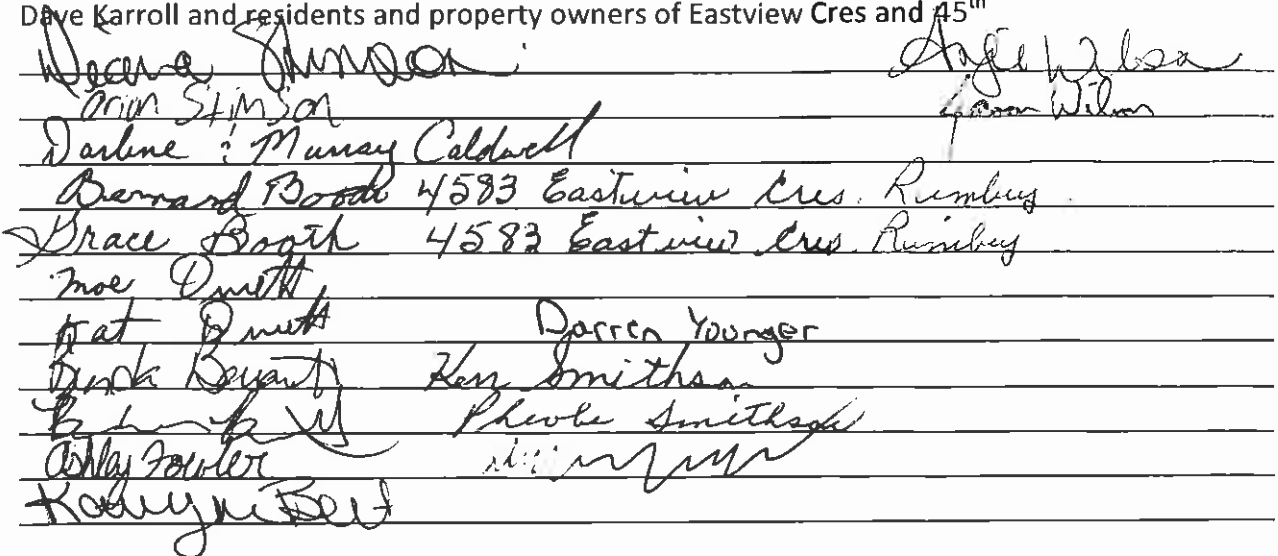 Dave Karroll and residents and property owners of Eastview Cres and 45th
Deana Stimson Angie Wilson
Orion Stimson Jason Wilson
Darlene & Murray Caldwell
Bernard Booth 4583 Eastview Cres. Rimbey
Grace Booth 4583 Eastview Cres. Rimbey
Moe
Pat Darren Younger
Ken Smithson
Pheobe Smithson
Ashley Fowler